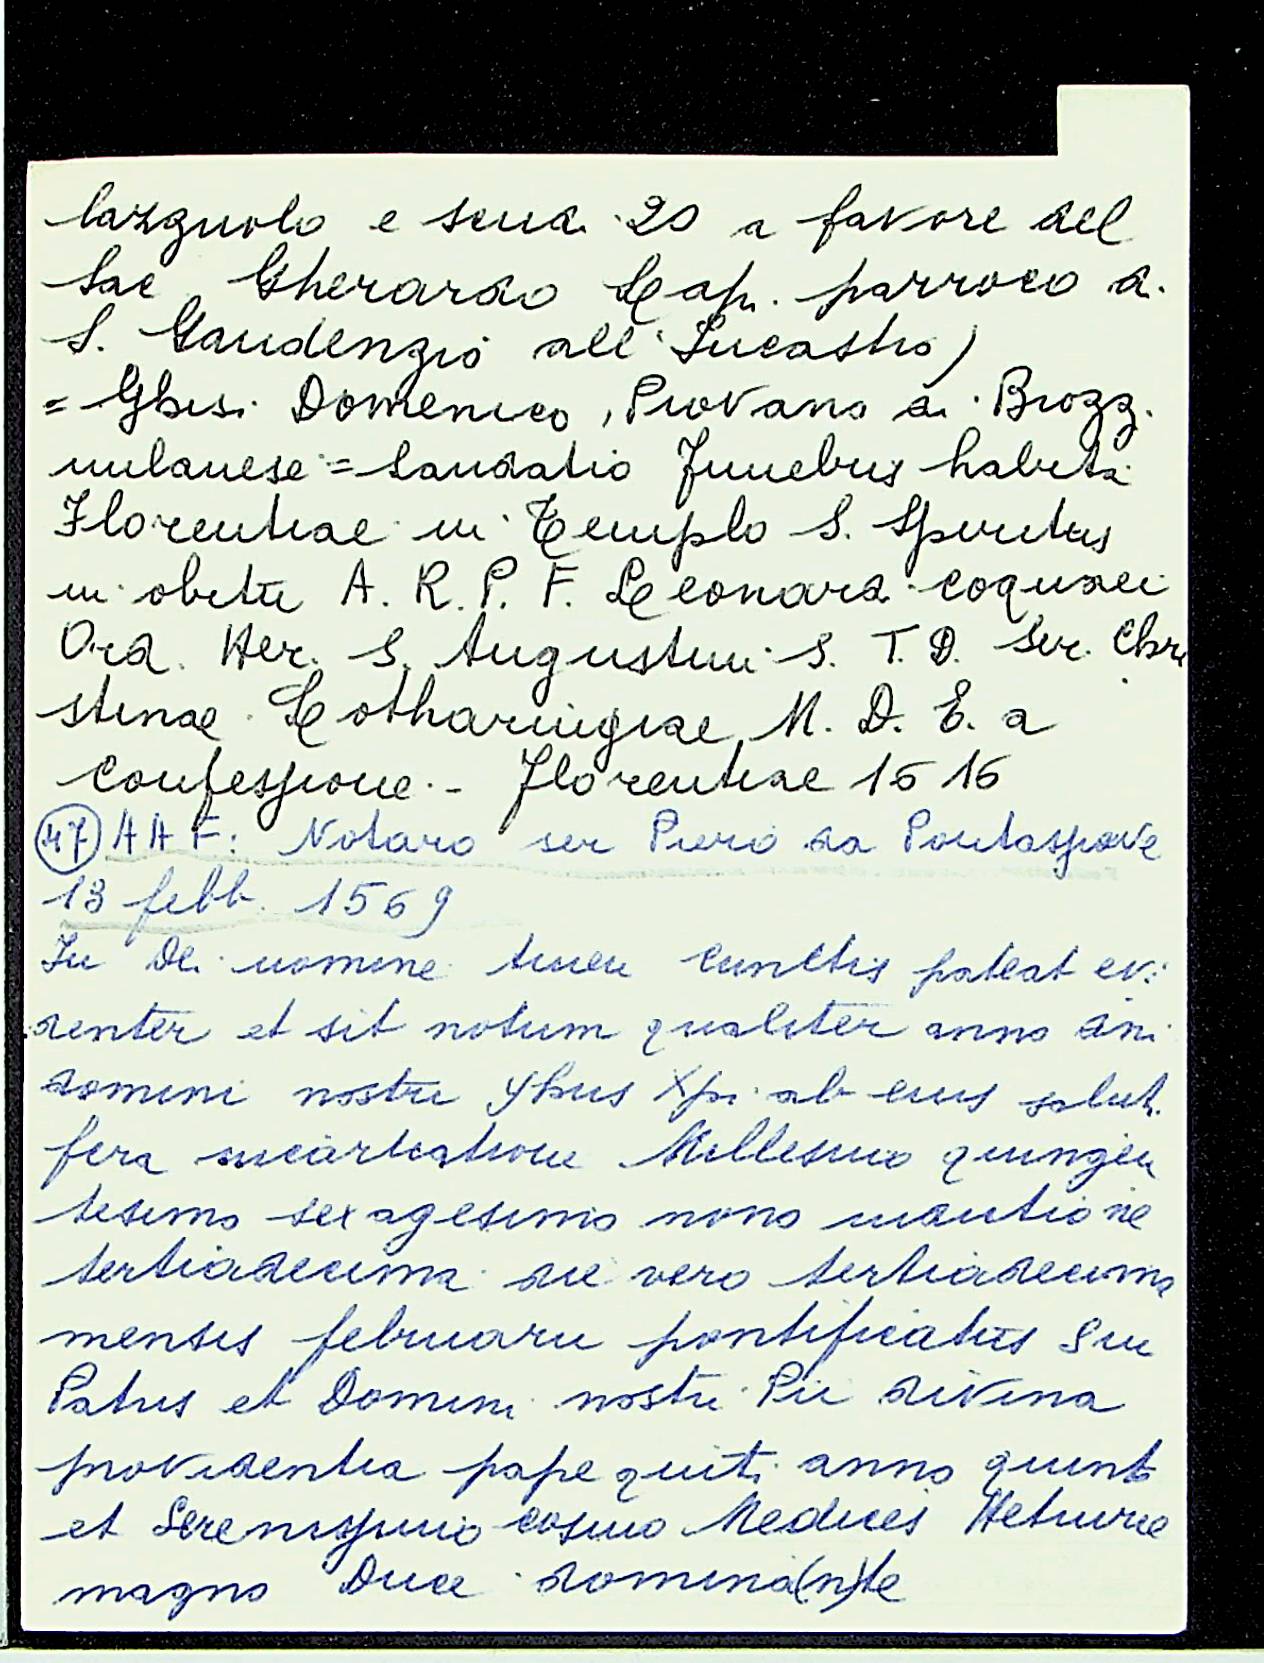 lazzuolo e scudi 20 a favore del
Sac. Gherardo Lapi parroco di
S. Gaudenzio all'Sucastro)
= Ghisi Domenico, Piovano di Brozzi
milanese = Laudatio Funebris habita
Florentiae in Templo S. Spiritus
in obitu A. R. P. F. Leonardi coquaei
Ord. Her. S. Augustini S. T. D. Ser. Chri
stinae Lotharingiae, M. D. E. a
confessione. - Florentiae 1616
(47) AAF: Notaro ser Piero da Pontassieve
13 febb. 1569
In Dei nomine cunctis pateat evi
denter et sit notum qualiter anno dni
domini nostri Yhus Xpi ab eius saluti
fera incarnatione Millesimo quingen
tesimo sexagesimo nono indictione
tertiadecima die vero tertiadecima
mensis februarii pontificatus Smi
Patris et Domini nostri Pii divina
providentia pape quiti anno quinto
et Serenissimo cosmo Medices Hetrurie
magno Duce domina(n)te